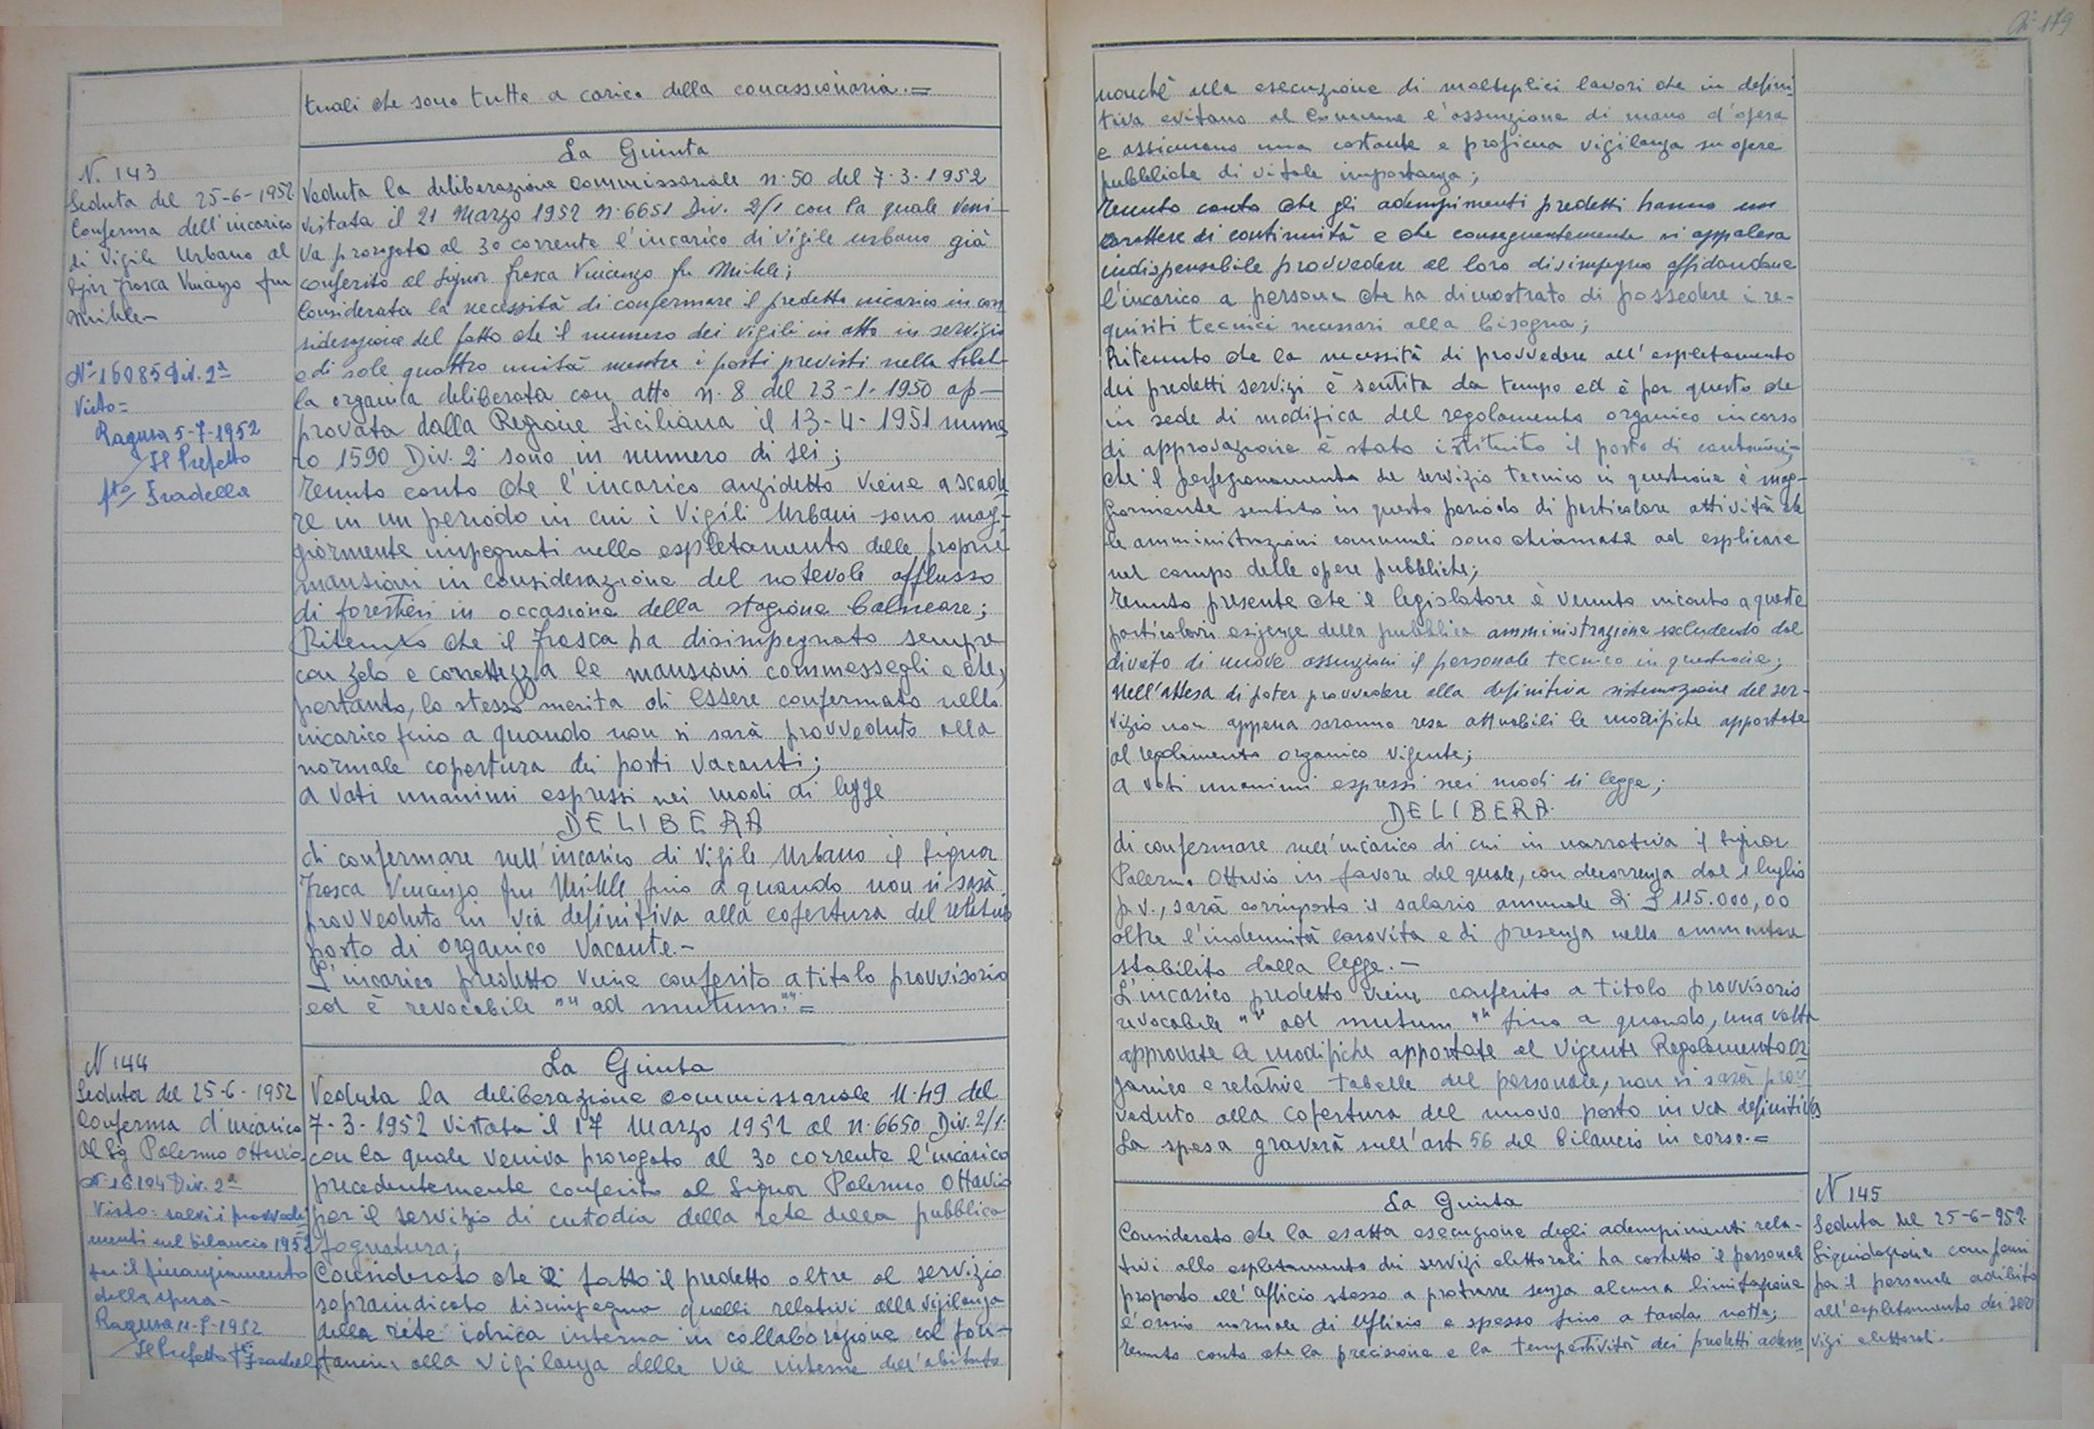 N° 179
tuali che sono tutte a carico della concessionaria.=
N. 143
Seduta del 25-6-1952
Conferma dell'incarico
di Vigile Urbano al
Sig. Frosca Vincenzo fu
Michele-
N° 16085 Div. 2ª
Visto=
Ragusa 5-7-1952
Il Prefetto
fto Fradella
La Giunta
Veduta la deliberazione Commissariale n. 50 del 7.3.1952
vistata il 21 Marzo 1952 N. 6651 Div. 2/1 con la quale veni-
va prorogato al 30 corrente l'incarico di Vigile urbano già
conferito al Signor Frosca Vincenzo fu Michele;
Considerata la necessità di confermare il predetto incarico in con
siderazione del fatto che il numero dei vigili in atto in servizio
e di sole quattro unità mentre i posti previsti nella tabel-
la organica deliberata con atto n. 8 del 23-1-1950 ap-
provata dalla Regione Siciliana il 13-4-1951 nume
ro 1590 Div. 2ª sono in numero di sei;
Tenuto conto che l'incarico anzidetto viene a scade
re in un periodo in cui i Vigili Urbani sono mag-
giormente impegnati nello espletamento delle proprie
mansioni in considerazione del notevole afflusso
di forestieri in occasione della stagione balneare;
Ritenuto che il Frosca ha disimpegnato sempre
con zelo e correttezza le mansioni commessegli e che,
pertanto, lo stesso merita di essere confermato nello
incarico fino a quando non si sarà provveduto alla
normale copertura dei posti vacanti;
a voti unanimi espressi nei modi di legge
DELIBERA
di confermare nell'incarico di Vigile Urbano il Signor
Frosca Vincenzo fu Michele fino a quando non si sarà
provveduto in via definitiva alla copertura del relativo
posto di organico vacante.-
L'incarico predetto viene conferito a titolo provvisorio
ed è revocabile "" ad nutum "".=
N 144
Seduta del 25-6-1952
Conferma d'incarico
al Sig Palermo Ottavio
N. 16104 Div. 2ª
Visto: salvi i provvedi
menti nel bilancio 1952
per il finanziamento
della spesa-
Ragusa 11-7-1952
Il Prefetto fto Fradella
La Giunta
Veduta la deliberazione commissariale N. 49 del
7-3-1952 vistata il 17 Marzo 1952 al n. 6650 Div. 2/1.
con la quale veniva prorogato al 30 corrente l'incarico
precedentemente conferito al Signor Palermo Ottavio
per il servizio di custodia della rete della pubblica
fognatura;
Considerato che di fatto il predetto oltre al servizio
sopraindicato disimpegna quelli relativi alla vigilanza
della rete idrica interna in collaborazione col fon-
taniere alla vigilanza delle vie interne dell'abitato
nonchè alla esecuzione di molteplici lavori che in defini
tiva evitano al Comune l'assunzione di mano d'opera
e assicurano una costante e proficua vigilanza su opere
pubbliche di vitale importanza;
Tenuto conto che gli adempimenti predetti hanno un
carattere di continuità e che conseguentemente si appalesa
indispensabile provvedere al loro disimpegno affidandone
l'incarico a persona che ha dimostrato di possedere i re-
quisiti tecnici necessari alla bisogna;
Ritenuto che la necessità di provvedere all'espletamento
dei predetti servizi è sentita da tempo ed è per questo che
in sede di modifica del regolamento organico in corso
di approvazione è stato istituito il posto di
che il perfezionamento del servizio tecnico in questione è mag-
giormente sentito in questo periodo di particolare attività che
le amministrazioni comunali sono chiamate ad esplicare
nel campo delle opere pubbliche;
Tenuto presente che il legislatore è venuto incontro a queste
particolari esigenze della pubblica amministrazione escludendo dal
divieto di nuove assunzioni il personale tecnico in questione;
Nell'attesa di poter provvedere alla definitiva sistemazione del ser-
vizio non appena saranno rese attuabili le modifiche apportate
al regolamento organico vigente;
a voti unanimi espressi nei modi di legge;
DELIBERA.
di confermare nell'incarico di cui in narrativa il Signor
Palermo Ottavio in favore del quale, con decorrenza dal 1 luglio
p.v., sarà corrisposto il salario annuale di £ 115.000,00
oltre l'indennità carovita e di presenza nello ammontare
stabilito dalla legge.-
L'incarico predetto viene conferito a titolo provvisorio
revocabile "" ad nutum "" fino a quando, una volta
approvate le modifiche apportate al Vigente Regolamento Or
ganico e relative tabelle del personale, non si sarà prov
veduto alla copertura del nuovo posto in via definitiva
La spesa graverà sull'art. 56 del bilancio in corso.=
La Giunta
Considerato che la esatta esecuzione degli adempimenti rela-
tivi allo espletamento dei servizi elettorali ha costretto il personale
proposto all'Ufficio stesso a protrarre senza alcuna limitazione
l'orario normale di Ufficio e spesso fino a tarda notte;
Tenuto conto che la precisione e la tempestività dei predetti adem
N 145
Seduta del 25-6-952
Liquidazione compensi
per il personale adibito
all'espletamento dei ser
vizi elettorali.